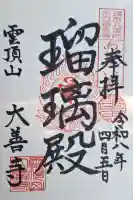 奉拝
令和八年
四月五日
瑠璃殿
霊頂山
大善寺